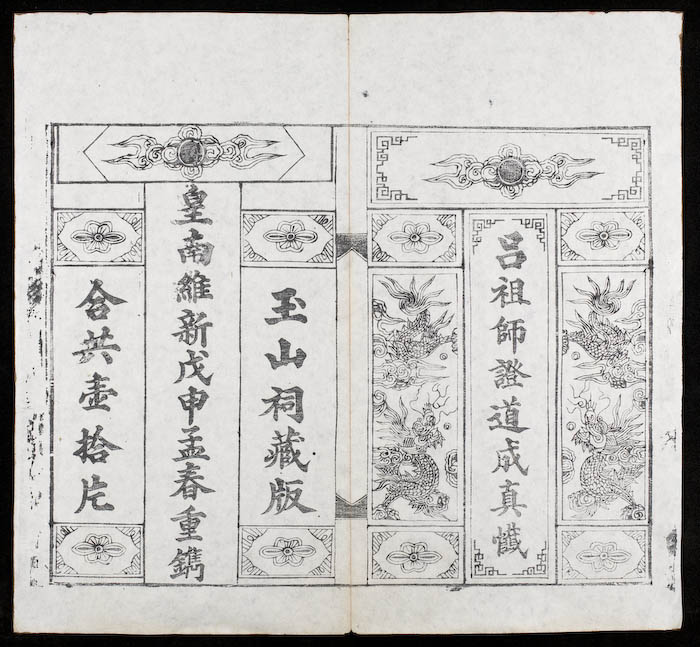 呂祖師證道成真懺
玉山祠藏版
皇南維新戊申孟春重鐫
合共壹拾片